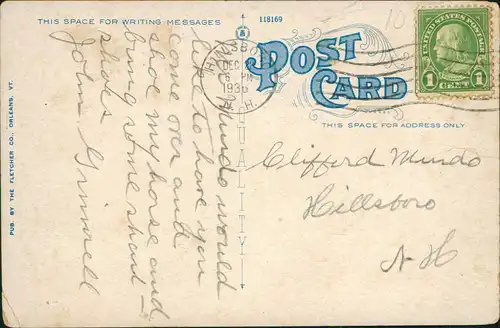 THIS SPACE FOR WRITING MESSAGES
118169
POST
CARD
THIS SPACE FOR ADDRESS ONLY
UNITED STATES POSTAGE
1 CENT 1
DEC
6 PM
193
N. H.
Mundo would
like to have you
come over and
shoe my horse and
bring some sharp
shoes
John Grinnell
Clifford Mundo
Hillsboro
N H
QUALITY
PUB. BY THE FLETCHER CO., ORLEANS, VT.